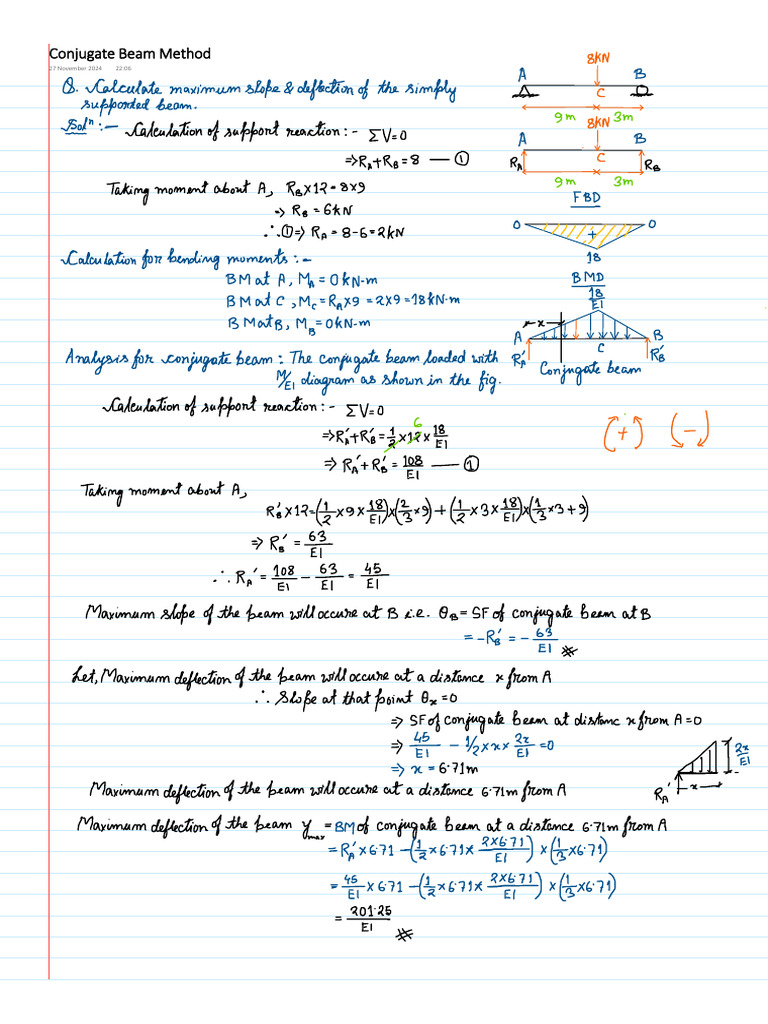 Conjugate Beam Method
27 November 2024 22:06
Q. Calculate maximum slope & deflection of the simply
supported beam.
Solⁿ :- Calculation of support reaction :- ΣV=0
⇒ R_A+R_B = 8 — ①
Taking moment about A, R_B×12 = 8×9
⇒ R_B = 6kN
∴ ① ⇒ R_A = 8-6 = 2kN
Calculation for bending moments :-
BM at A, M_A = 0 kN-m
BM at C, M_C = R_A×9 = 2×9 = 18 kN-m
BM at B, M_B = 0 kN-m
8kN
A B
C
9m 3m
8kN
A B
R_A C R_B
9m 3m
FBD
0 + 0
18
BMD
18/EI
x
A B
R_A' C R_B'
Conjugate beam
Analysis for conjugate beam : The conjugate beam loaded with
M/EI diagram as shown in the fig.
Calculation of support reaction :- ΣV=0
⇒ R_A'+R_B' = 1/2 ×12× 18/EI
6
⇒ R_A'+R_B' = 108/EI — ①
(+) (-)
Taking moment about A,
R_B'×12 = (1/2 ×9× 18/EI)×(2/3 ×9) + (1/2 ×3× 18/EI)×(1/3 ×3+9)
⇒ R_B' = 63/EI
∴ R_A' = 108/EI - 63/EI = 45/EI
Maximum slope of the beam will occure at B i.e. θ_B = SF of conjugate beam at B
= -R_B' = - 63/EI
Let, Maximum deflection of the beam will occure at a distance x from A
∴ Slope at that point θ_x = 0
⇒ SF of conjugate beam at distanc x from A = 0
⇒ 45/EI - 1/2 × x × 2x/EI = 0
⇒ x = 6.71m
2x/EI
R_A' x
Maximum deflection of the beam will occure at a distance 6.71m from A
Maximum deflection of the beam y_max = BM of conjugate beam at a distance 6.71m from A
= R_A' × 6.71 - (1/2 × 6.71 × 2×6.71/EI) × (1/3 × 6.71)
= 45/EI × 6.71 - (1/2 × 6.71 × 2×6.71/EI) × (1/3 × 6.71)
= 201.25/EI